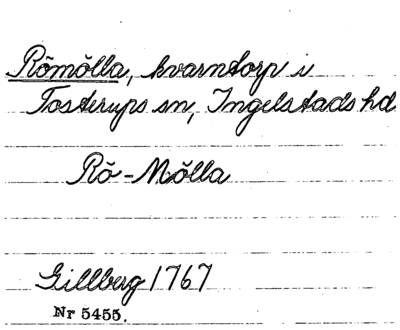 Römölla, kvarntorp i
Tosterups sn, Ingelstads hd
Rö-Mölla
Gillberg 1767
Nr 5455.